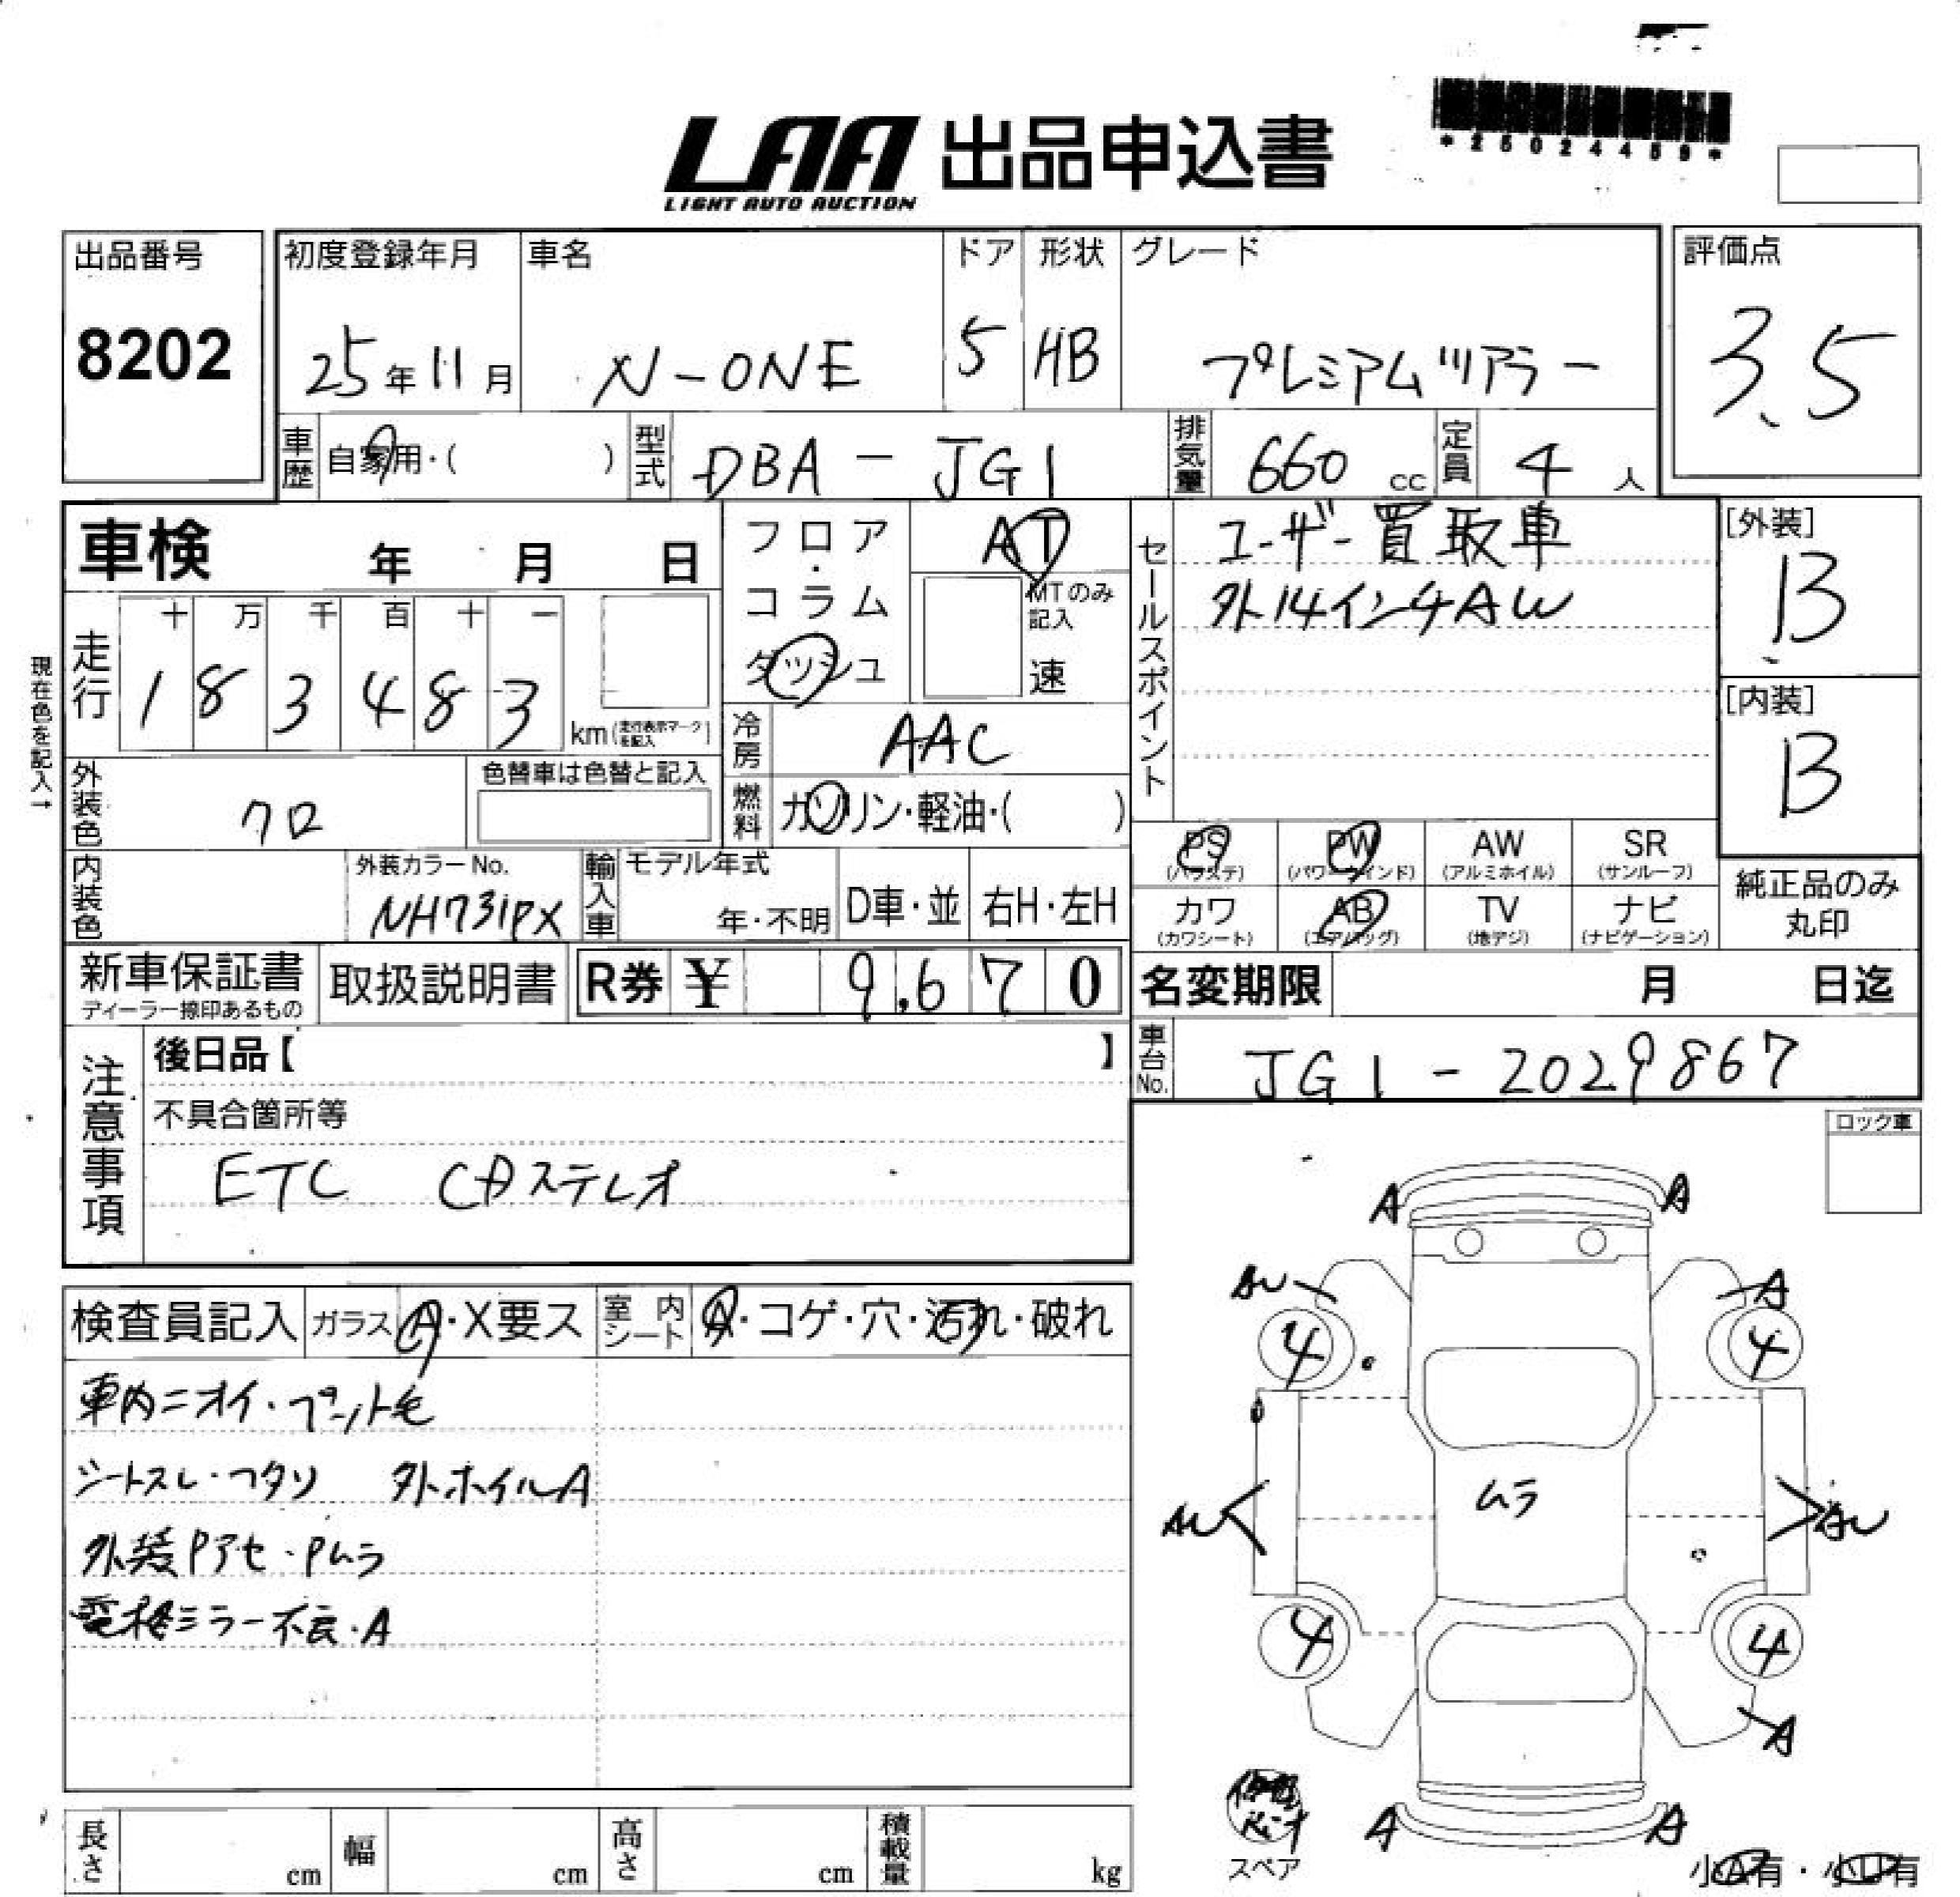 *25024459*
LAA 出品申込書
LIGHT AUTO AUCTION
出品番号
8202
初度登録年月
25年11月
車名
N-ONE
ドア
5
形状
HB
グレード
プレミアムツアラー
評価点
3.5
車歴 自家用・( )
型式 DBA-JG1
排気量 660 cc
定員 4 人
車検 年 月 日
走行
十 万 千 百 十 一
1 8 3 4 8 3
km(走行表示マークを記入)
現在色を記入→
フロア・コラム
ダッシュ
AT
MTのみ記入
速
冷房 AAC
燃料 ガソリン・軽油・( )
セールスポイント
ユーザー買取車
外14インチAW
[外装]
B
[内装]
B
外装色 クロ
色替車は色替と記入
内装色
外装カラーNo.
NH731PX
輸入車
モデル年式
年・不明
D車・並
右H・左H
PS
(パワステ)
PW
(パワーウインド)
AW
(アルミホイル)
SR
(サンルーフ)
カワ
(カワシート)
AB
(エアバッグ)
TV
(地デジ)
ナビ
(ナビゲーション)
純正品のみ
丸印
新車保証書
ディーラー捺印あるもの
取扱説明書
R券 ¥ 9,670
名変期限 月 日迄
車台No. JG1-2029867
注意事項
後日品【 】
不具合箇所等
ETC CDステレオ
ロック車
検査員記入
ガラス A・X要ス
室内シート A・コゲ・穴・汚れ・破れ
車内ニオイ・ペット毛
シートスレ・ヘタリ 外ホイルA
外装Pアセ・Pムラ
電格ミラー不良・A
A A
AU A
4 4
ムラ
AU AU
4 4
A
A A
スペア
小A有・小U有
長さ cm
幅 cm
高さ cm
積載量 kg